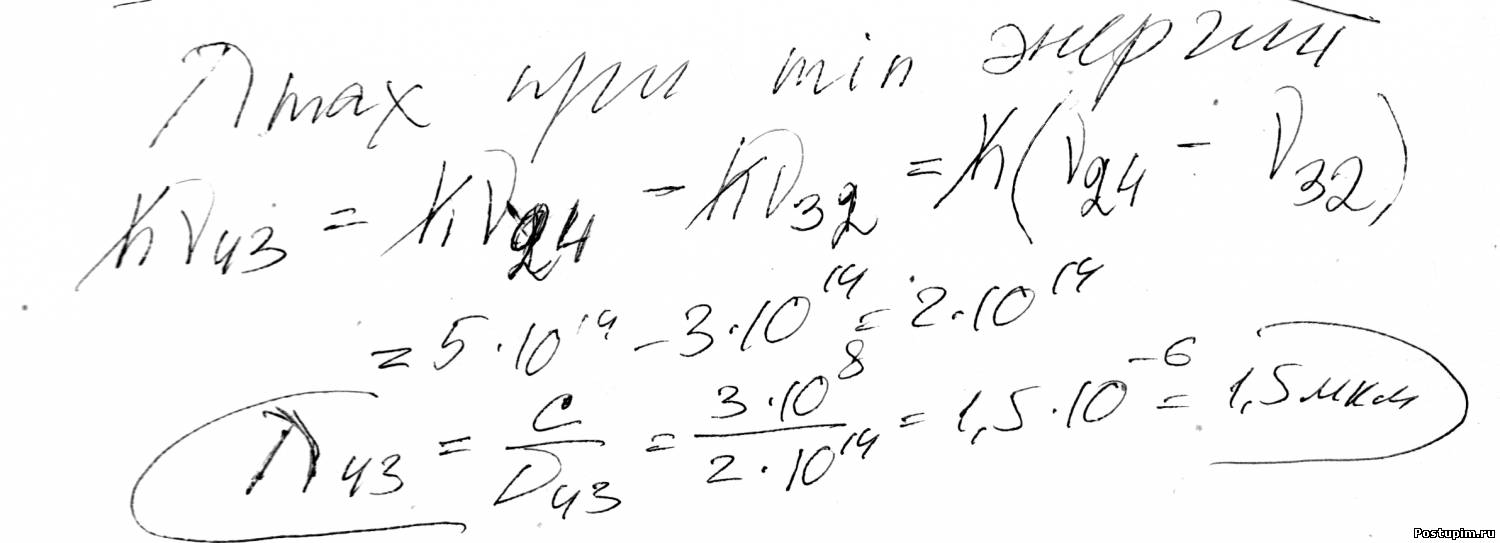 λmax при min энергии
hν43 = hν24 − hν32 = h(ν24 − ν32)
= 5·10^14 − 3·10^14 = 2·10^14
λ43 = c/ν43 = 3·10^8/2·10^14 = 1,5·10^−6 = 1,5 мкм
Postupim.ru